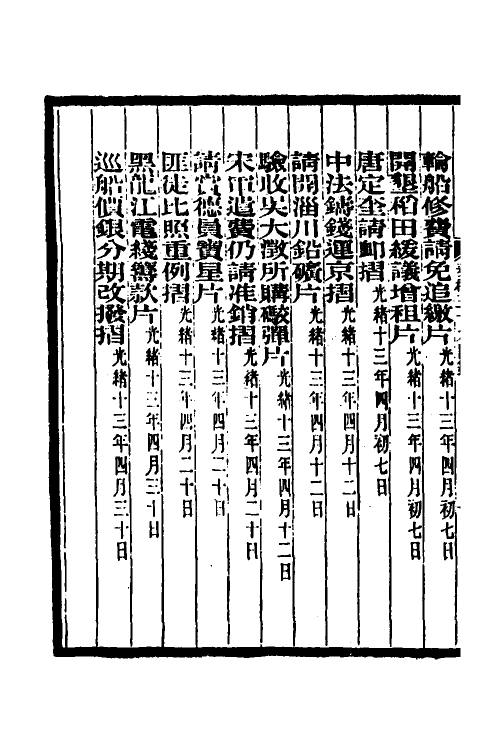 輪船修費請免追繳片光緒十三年四月初七日
開墾稻田緩議增租片光緒十三年四月初七日
唐定奎請卹摺光緒十三年四月初七日
中法鑄錢運京摺光緒十三年四月十二日
請開淄川鉛礦片光緒十三年四月十二日
驗收吳大澂所購礮彈片光緒十三年四月十二日
宋軍遣費仍請准銷摺光緒十三年四月二十日
請賞德員寶星片光緒十三年四月二十日
匪徒比照重例摺光緒十三年四月二十日
黑龍江電綫籌款片光緒十三年四月三十日
巡船價銀分期改撥摺光緒十三年四月三十日